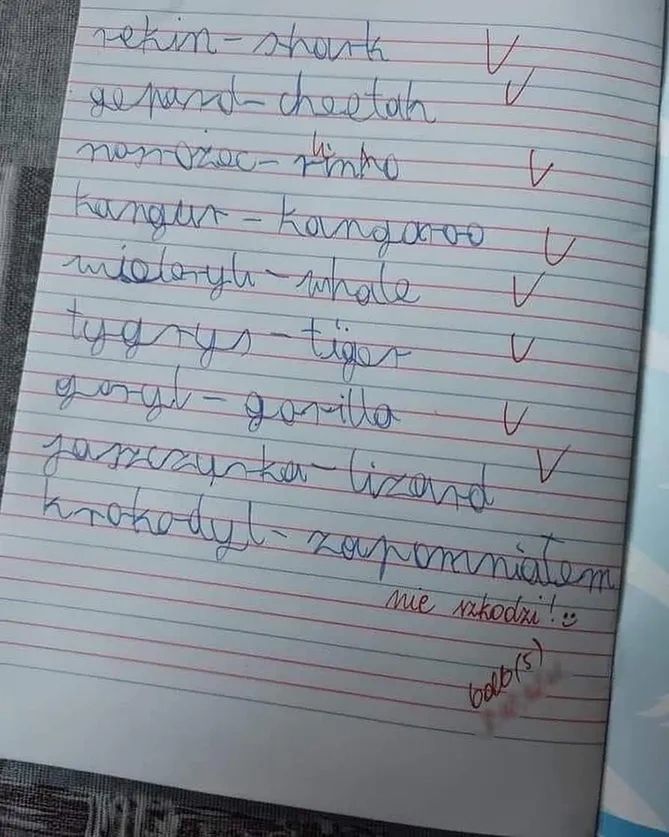 rekin - shark V
gepard - cheetah V
hi
nosrożec - rinho V
kangur - kangaroo V
wieloryb - whale V
tygrys - tiger V
goryl - gorilla V
jaszczurka - lizard V
krokodyl - zapomniałem
nie szkodzi! :)
bdb(5)